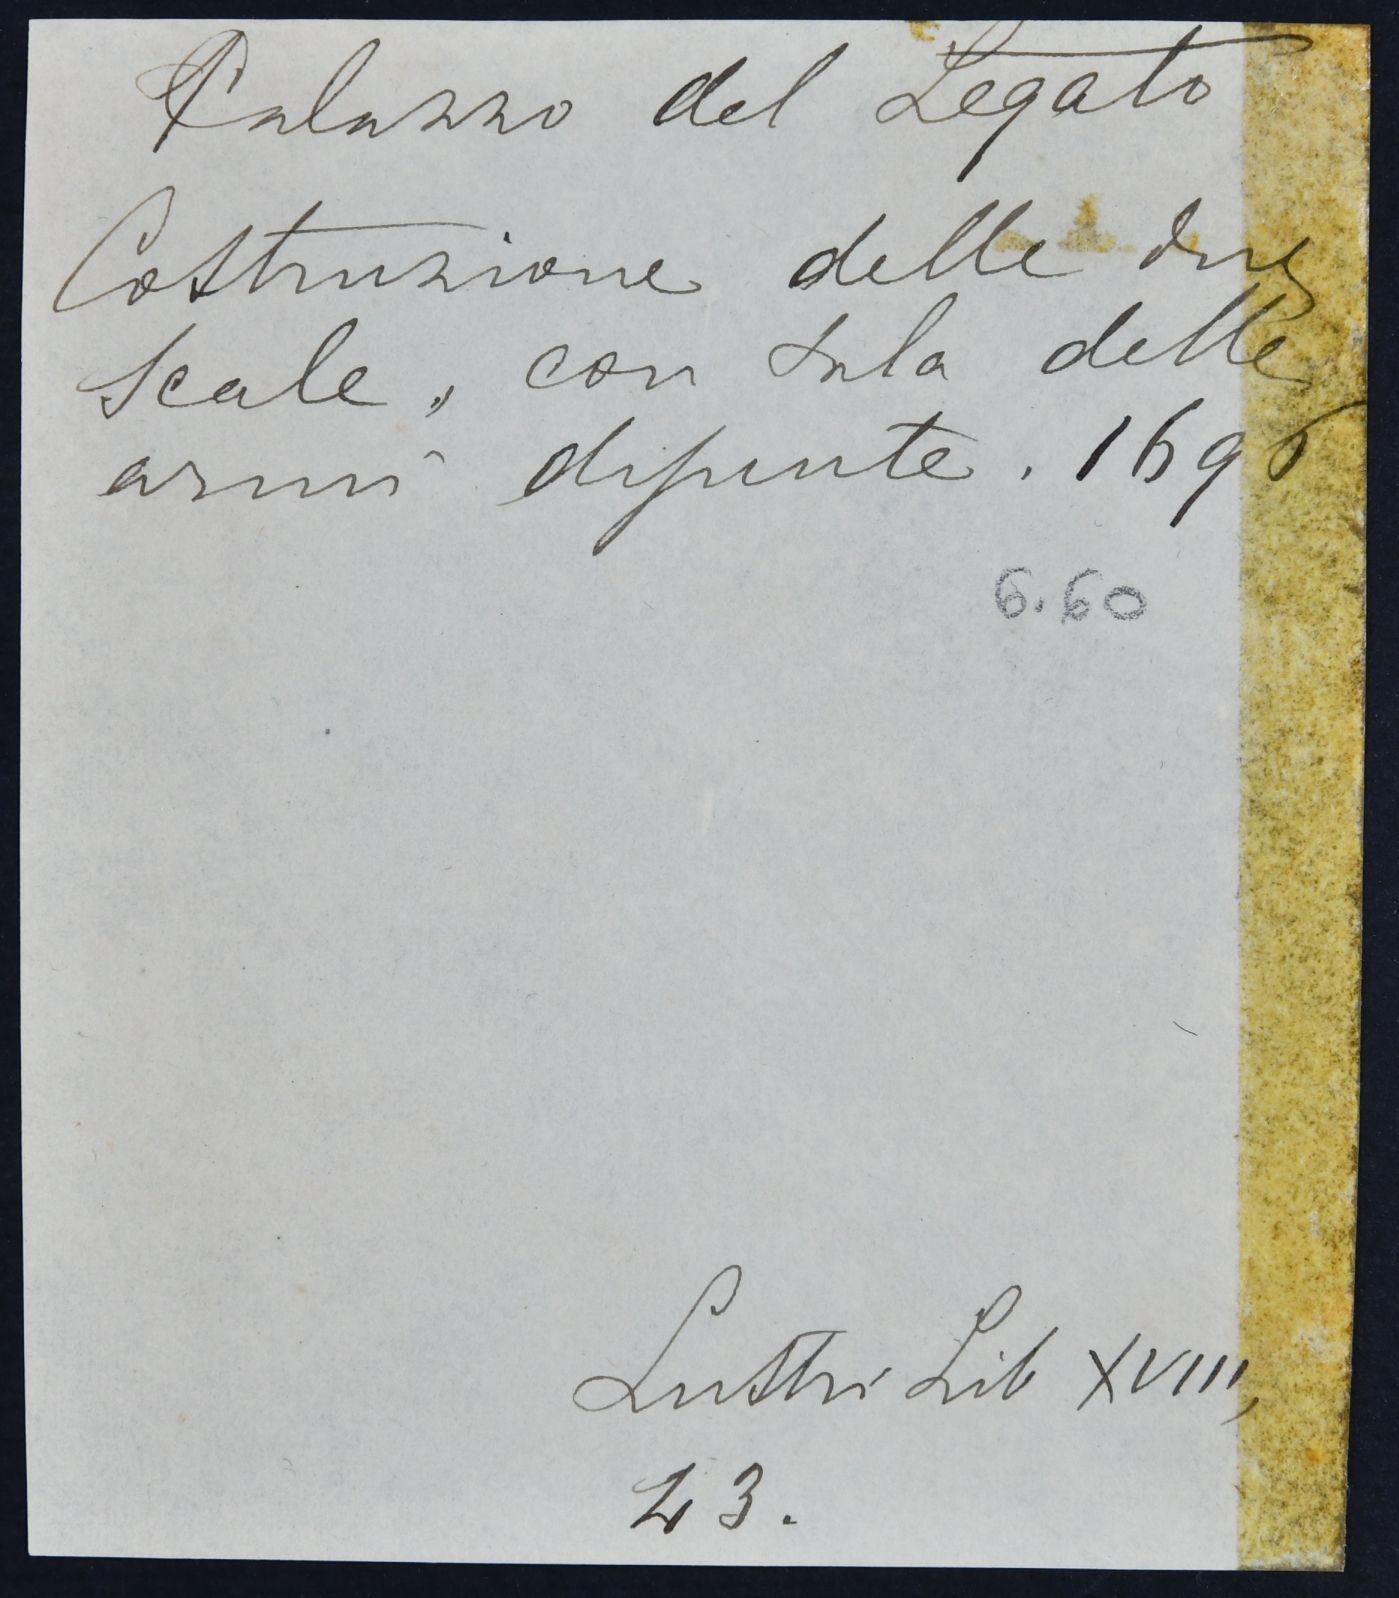 Palazzo del Legato
Costruzione delle due
scale, con sala delle
armi dipinte. 1696
6.60
Lustri Lib XVIII,
43.